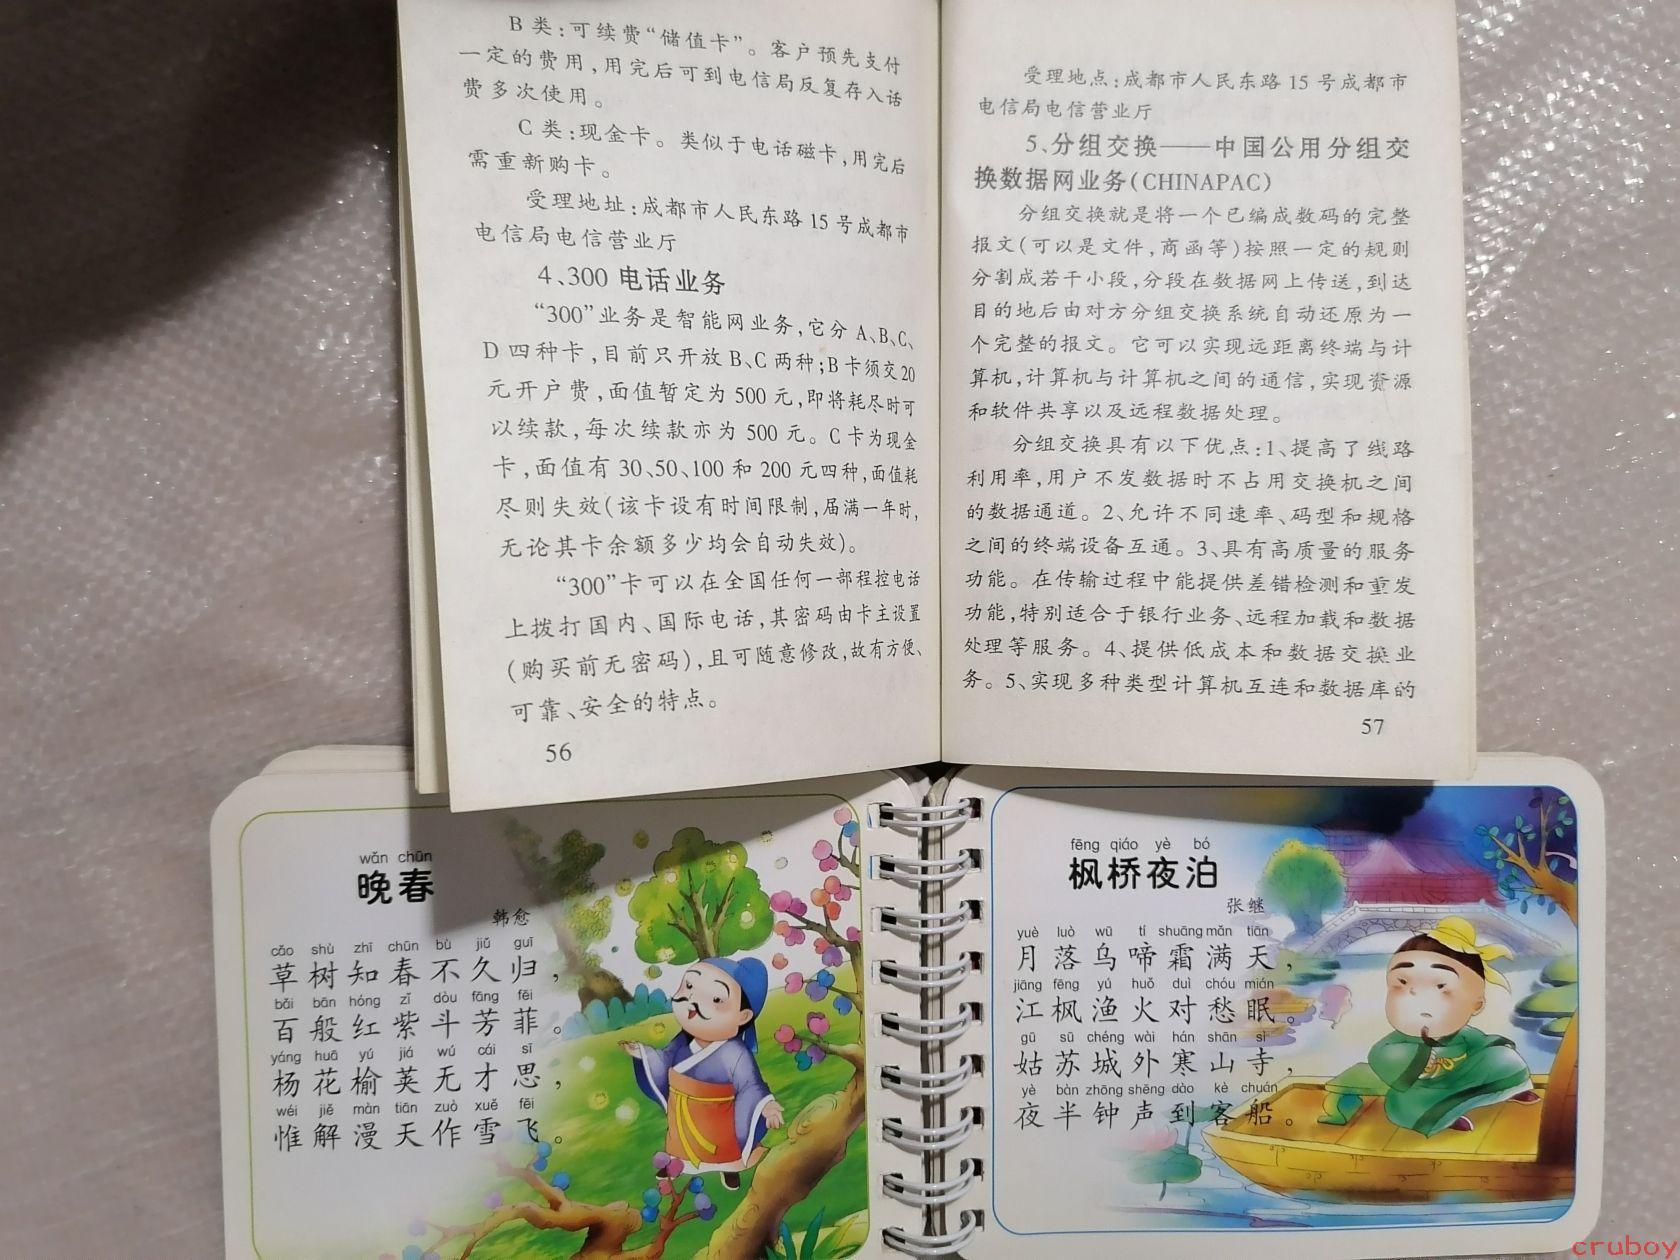 B 类:可续费“储值卡”。客户预先支付
一定的费用,用完后可到电信局反复存入话
费多次使用。
C 类:现金卡。类似于电话磁卡,用完后
需重新购卡。
受理地址:成都市人民东路 15 号成都市
电信局电信营业厅
4、300 电话业务
“300”业务是智能网业务,它分 A、B、C、
D 四种卡,目前只开放 B、C 两种;B 卡须交20
元开户费,面值暂定为 500 元,即将耗尽时可
以续款,每次续款亦为 500 元。C 卡为现金
卡,面值有 30、50、100 和 200 元四种,面值耗
尽则失效(该卡设有时间限制,届满一年时,
无论其卡余额多少均会自动失效)。
“300”卡可以在全国任何一部程控电话
上拨打国内、国际电话,其密码由卡主设置
(购买前无密码),且可随意修改,故有方便、
可靠、安全的特点。
56
受理地点:成都市人民东路 15 号成都市
电信局电信营业厅
5、分组交换——中国公用分组交
换数据网业务(CHINAPAC)
分组交换就是将一个已编成数码的完整
报文(可以是文件,商函等)按照一定的规则
分割成若干小段,分段在数据网上传送,到达
目的地后由对方分组交换系统自动还原为一
个完整的报文。它可以实现远距离终端与计
算机,计算机与计算机之间的通信,实现资源
和软件共享以及远程数据处理。
分组交换具有以下优点:1、提高了线路
利用率,用户不发数据时不占用交换机之间
的数据通道。2、允许不同速率、码型和规格
之间的终端设备互通。3、具有高质量的服务
功能。在传输过程中能提供差错检测和重发
功能,特别适合于银行业务、远程加载和数据
处理等服务。4、提供低成本和数据交换业
务。5、实现多种类型计算机互连和数据库的
57
wǎn chūn
晚春
韩愈
cǎo shù zhī chūn bù jiǔ guī
草树知春不久归,
bǎi bān hóng zǐ dòu fāng fēi
百般红紫斗芳菲。
yáng huā yú jiá wú cái sī
杨花榆荚无才思,
wéi jiě màn tiān zuò xuě fēi
惟解漫天作雪飞。
fēng qiáo yè bó
枫桥夜泊
张继
yuè luò wū tí shuāng mǎn tiān
月落乌啼霜满天,
jiāng fēng yú huǒ duì chóu mián
江枫渔火对愁眠。
gū sū chéng wài hán shān sì
姑苏城外寒山寺,
yè bàn zhōng shēng dào kè chuán
夜半钟声到客船。
cruboy